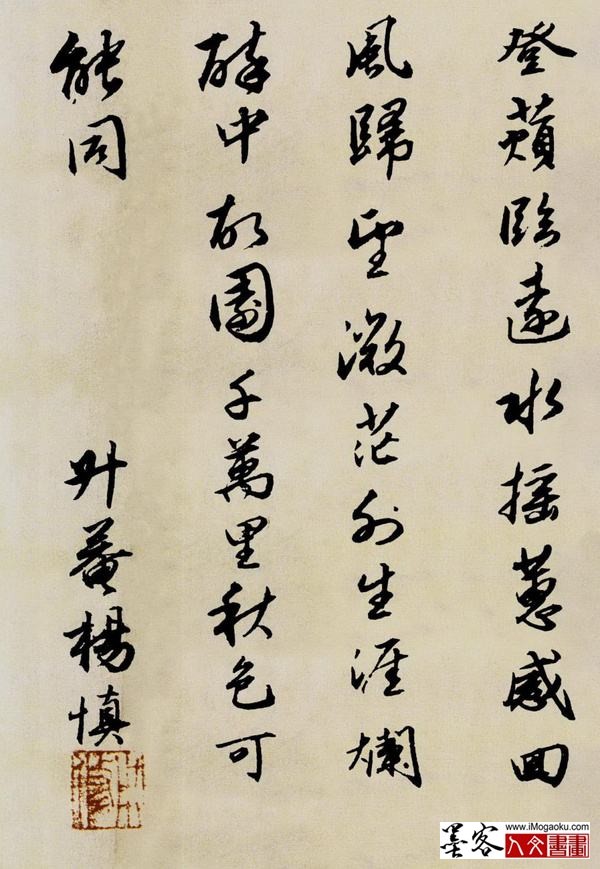 登蘋臨遠水摇蕙感回
風歸望微茫外生涯爛
醉中故園千萬里秋色可
能同
升菴楊慎
墨客
www.iMogaoku.com
人文書畫